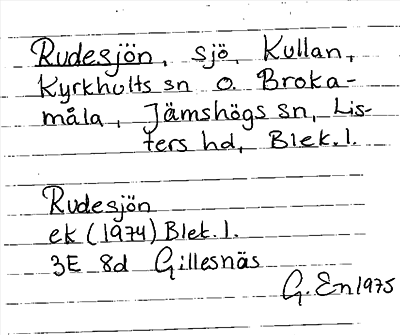 Rudesjön, sjö, Kullan,
Kyrkhults sn o. Broka-
måla, Jämshögs sn, Lis-
ters hd, Blek. l.
Rudesjön
ek (1974) Blek. l.
3E 8d Gillesnäs
G. En 1975